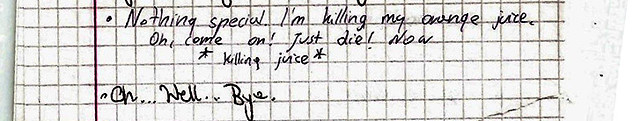 • Nothing special. I'm killing my orange juice.
Oh, come on! Just die! Now
* killing juice *
• Oh... Well... Bye.